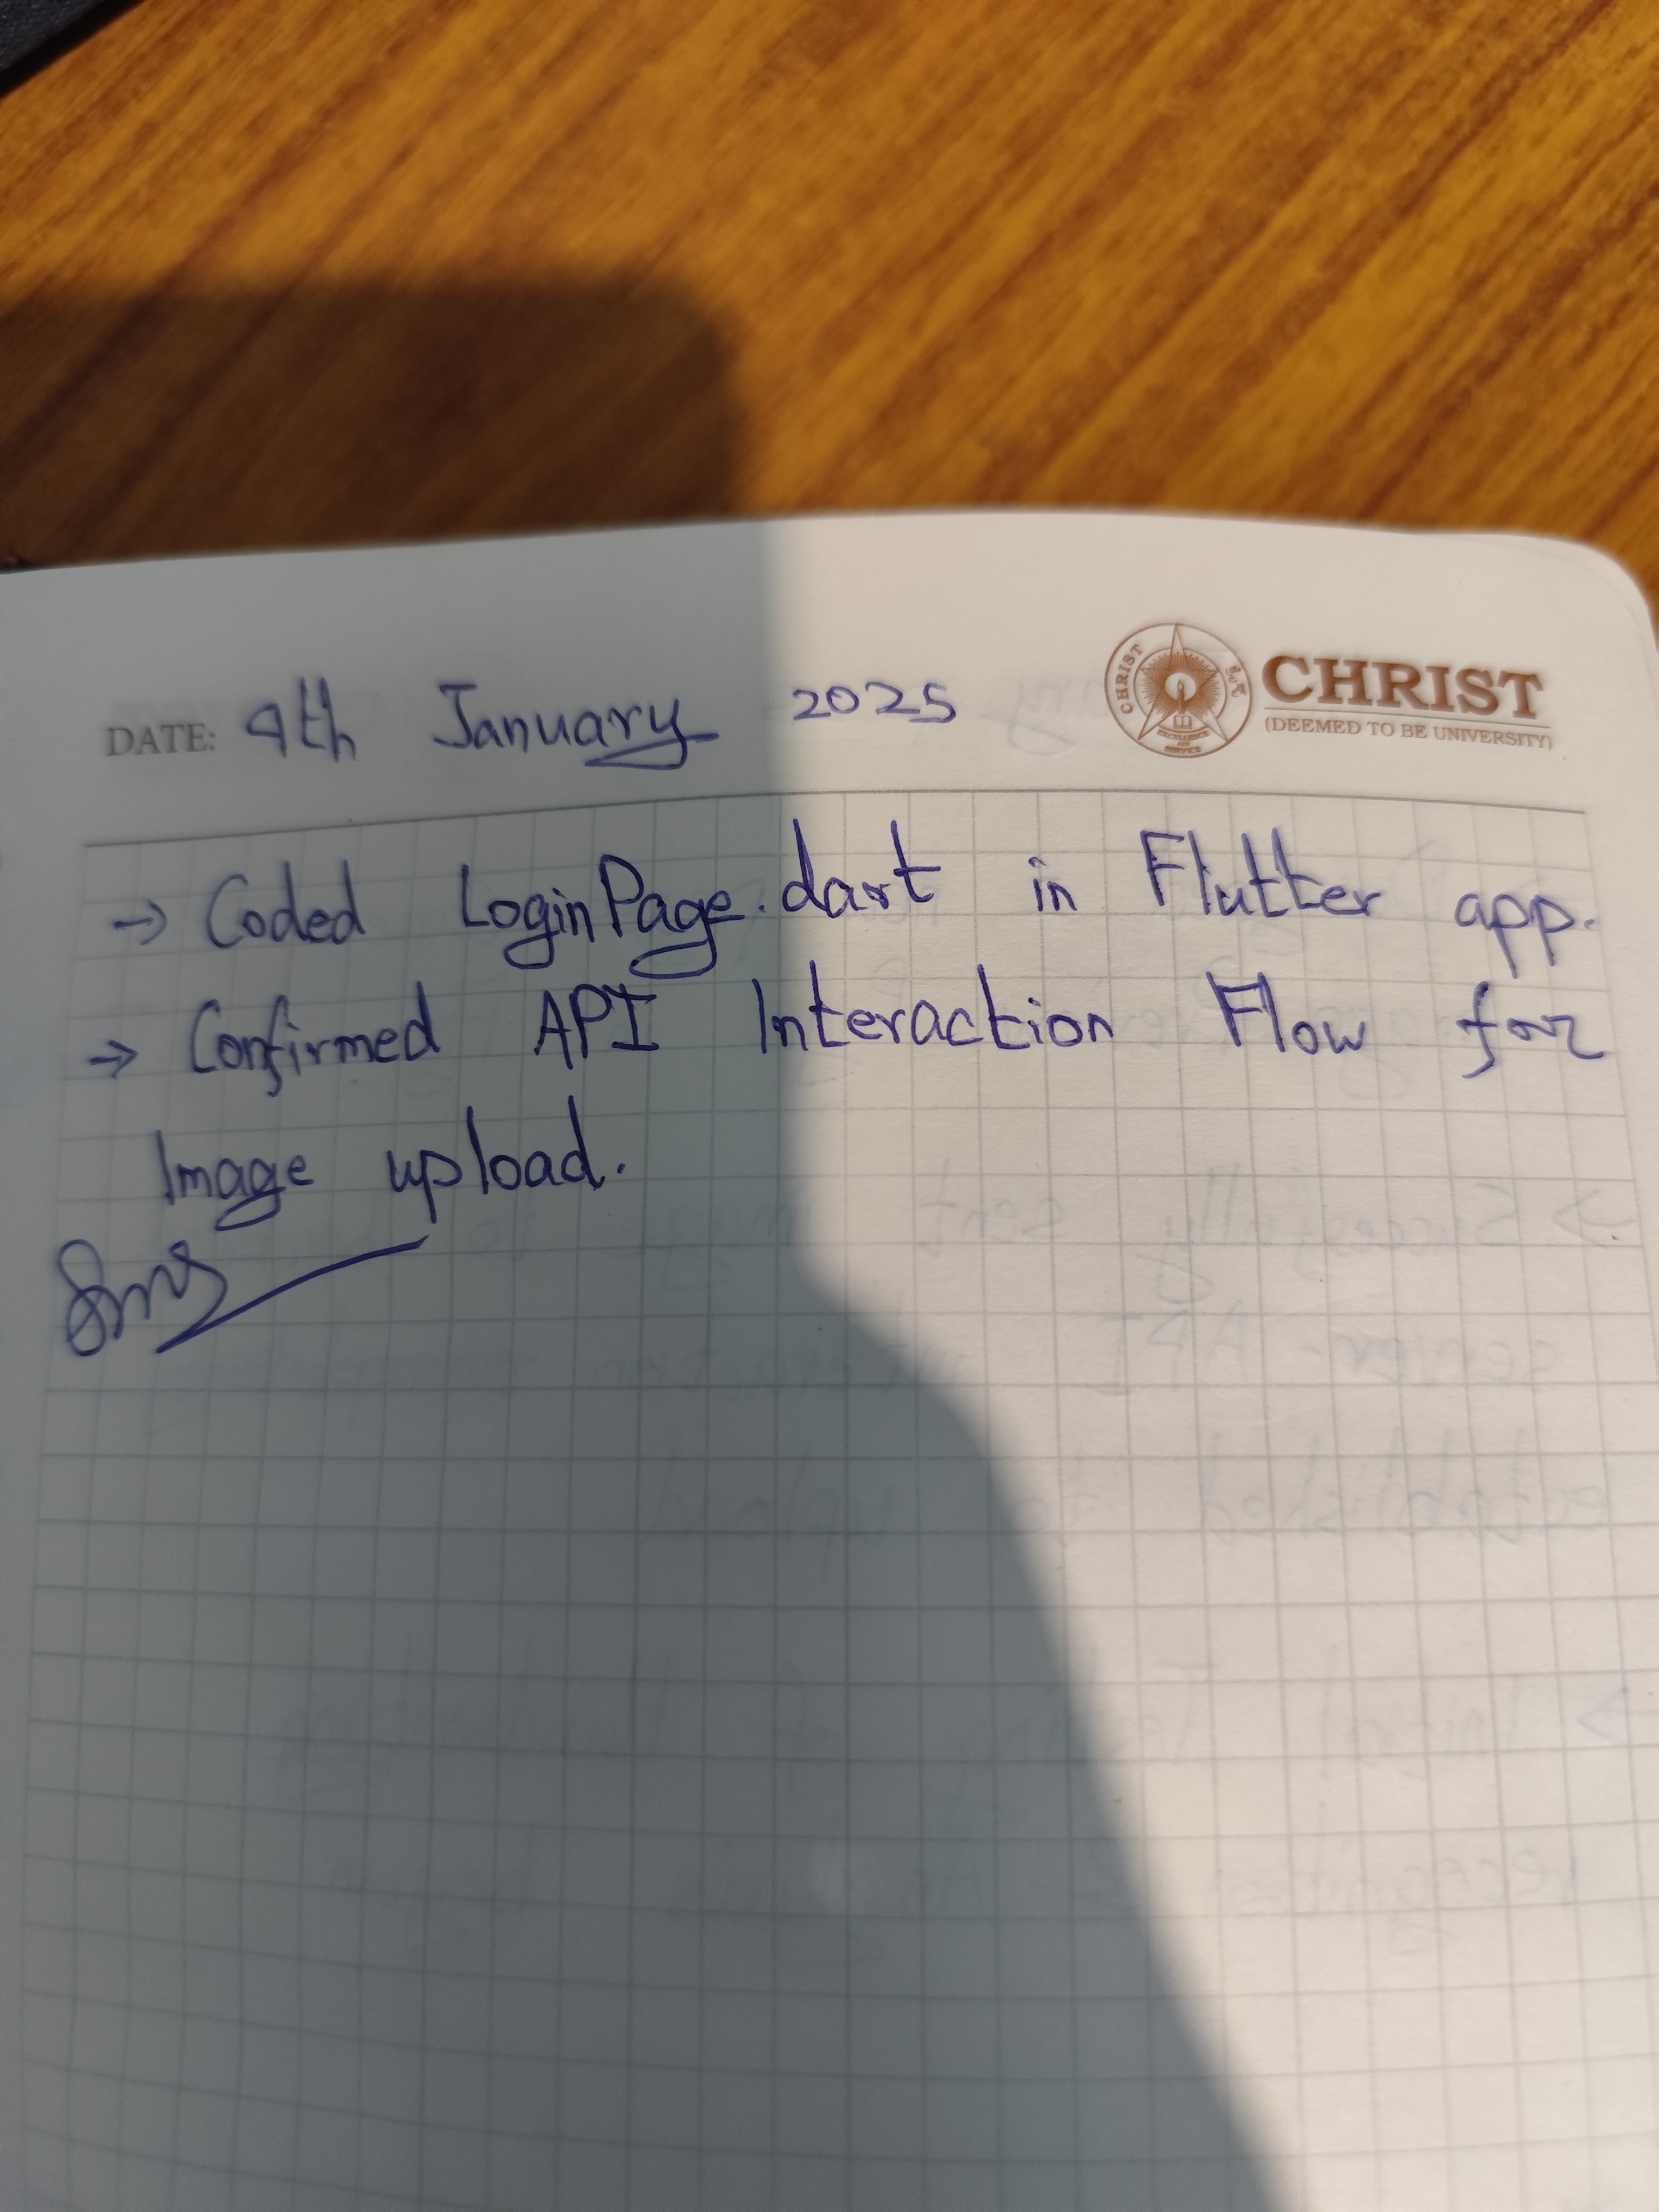 DATE: 9th January 2025
CHRIST
(DEEMED TO BE UNIVERSITY)
CHRIST
EXCELLENCE AND SERVICE
→ Coded LoginPage.dart in Flutter app.
→ Confirmed API Interaction Flow for
Image upload.